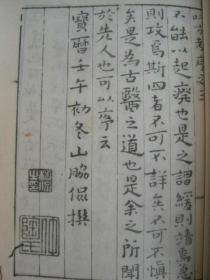 不能以起癈也是之謂緩則請爲急
則攻爲斯四者不可不詳矣不可不慎
矣是爲古醫之道也是余之所聞
於先人也可以序云
寶曆壬午初冬山脇侃撰